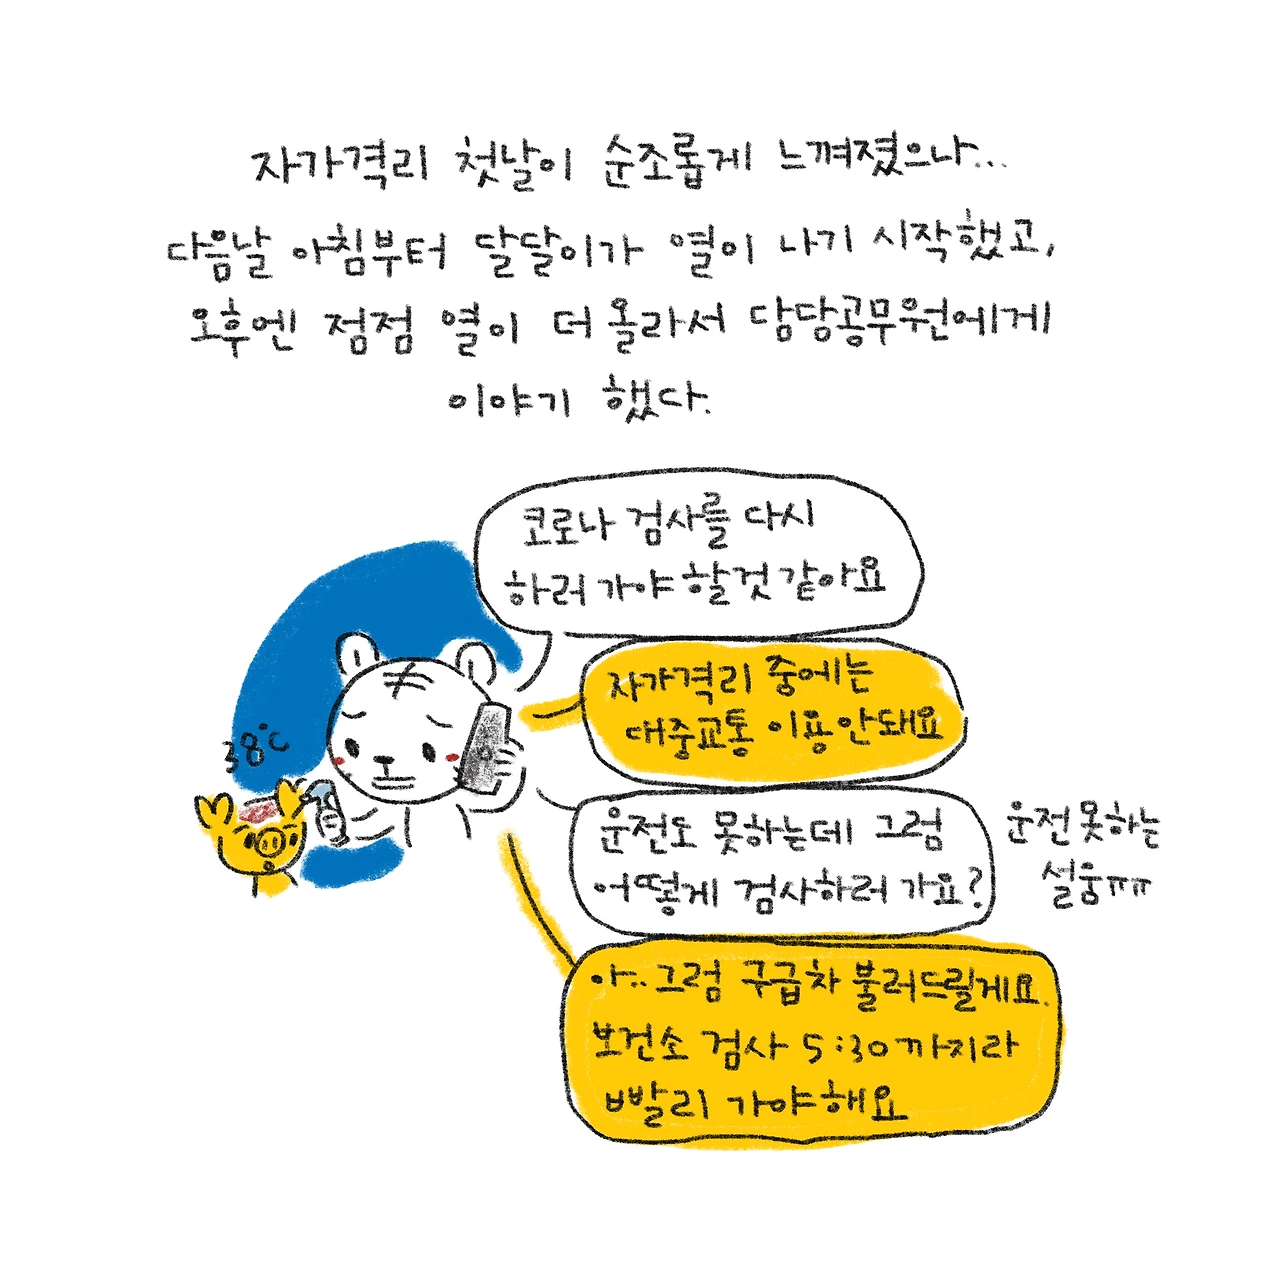 자가격리 첫날이 순조롭게 느껴졌으나...
다음날 아침부터 달달이가 열이 나기 시작했고,
오후엔 점점 열이 더 올라서 담당공무원에게
이야기 했다.
코로나 검사를 다시
하러 가야 할것 같아요
자가격리 중에는
대중교통 이용안돼요
38℃
운전도 못하는데 그럼
어떻게 검사하러 가요?
운전못하는
설움ㅠㅠ
아.. 그럼 구급차 불러드릴게요.
보건소 검사 5:30까지라
빨리 가야해요